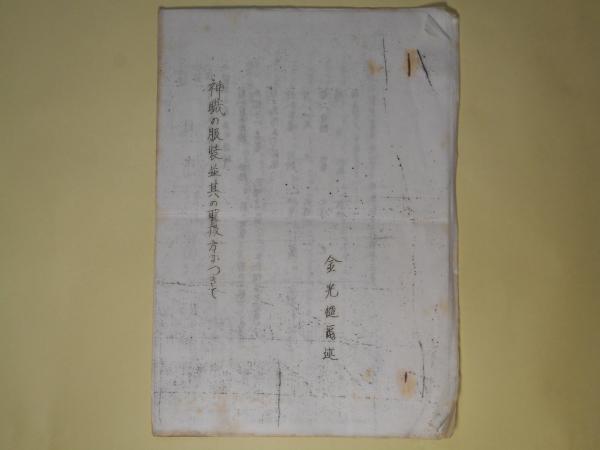 神職の服装並其の取扱方につきて
金光慥爾述